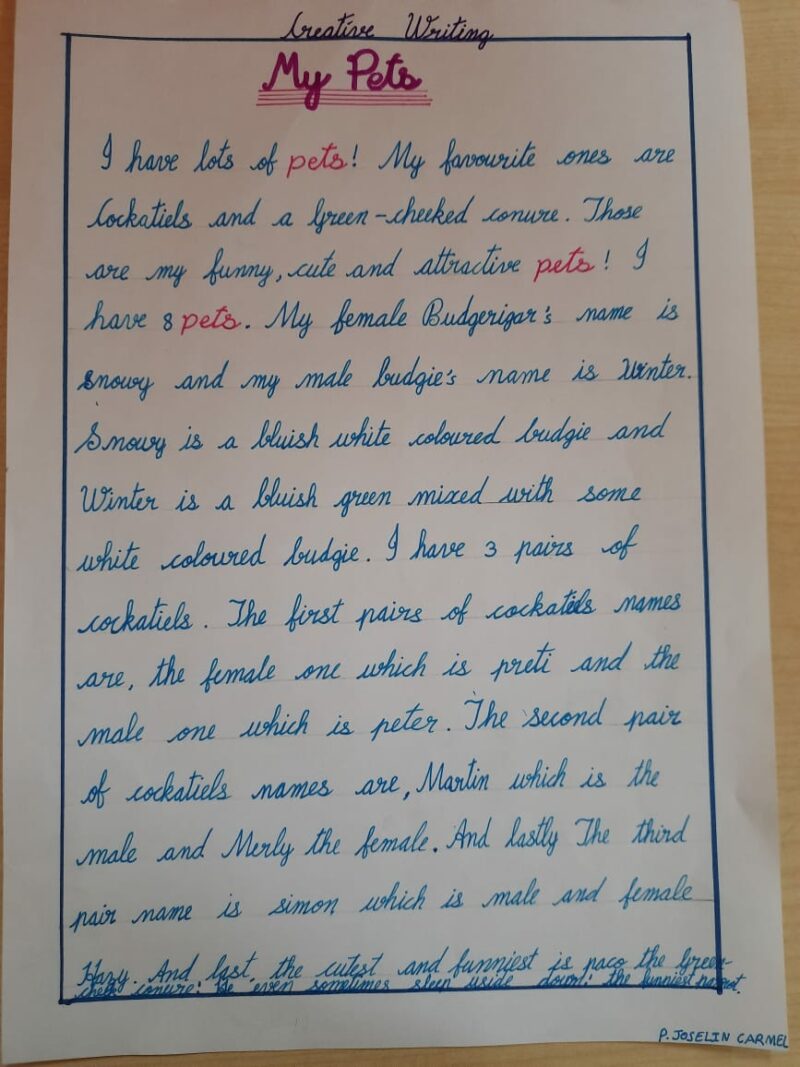 Creative Writing
My Pets
I have lots of pets! My favourite ones are
Cockatiels and a Green-cheeked conure. Those
are my funny, cute and attractive pets! I
have 8 pets. My female Budgerigar's name is
Snowy and my male budgie's name is Winter.
Snowy is a bluish white coloured budgie and
Winter is a bluish green mixed with some
white coloured budgie. I have 3 pairs of
cockatiels. The first pairs of cockatiels names
are, the female one which is preti and the
male one which is peter. The second pair
of cockatiels names are, Martin which is the
male and Merly the female. And lastly The third
pair name is simon which is male and female
Hazy. And last, the cutest and funniest is paco the Green-
cheek conure: He even sometimes sleep uside down: the funniest parrot.
P. JOSELIN CARMEL